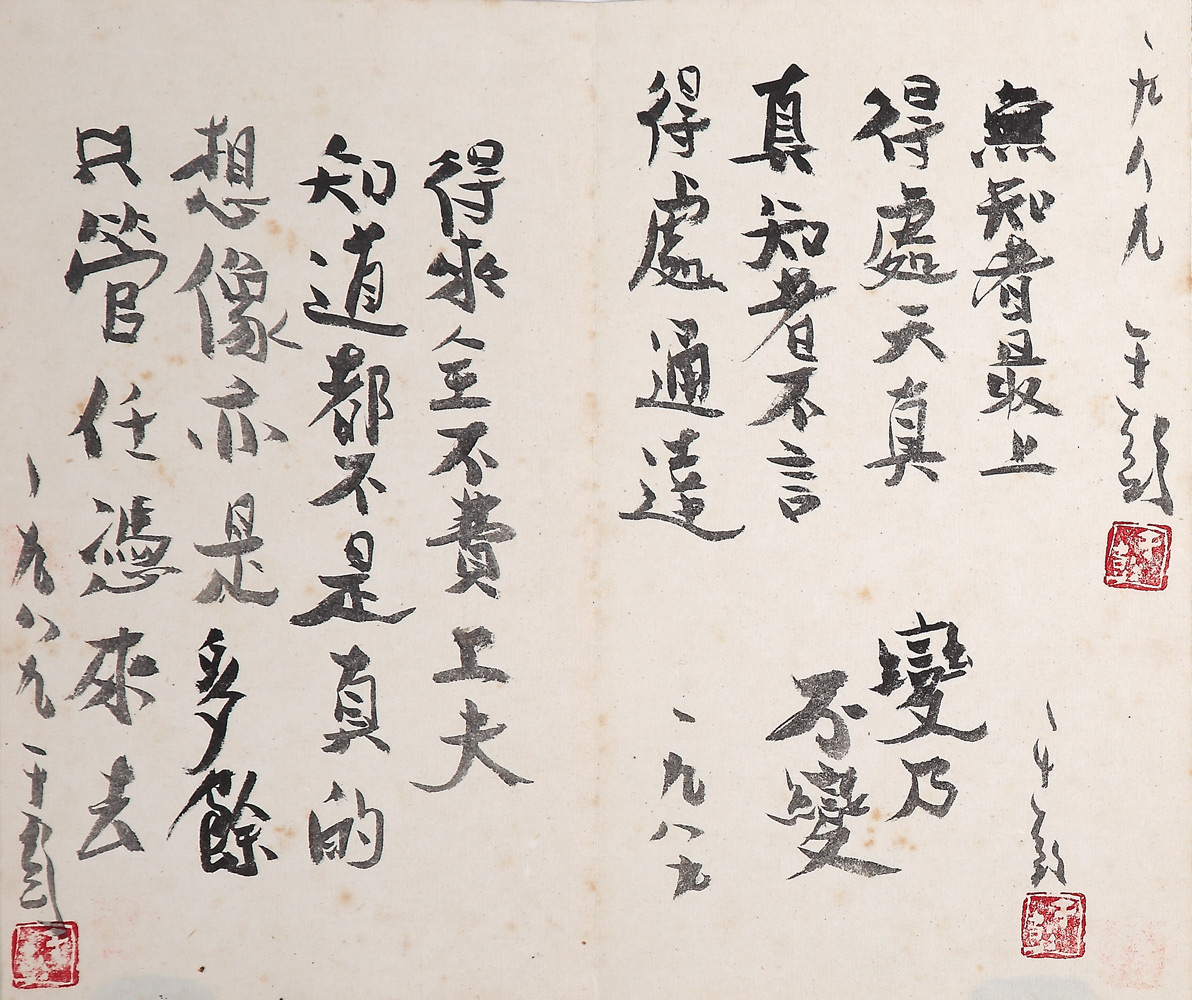 一九八九 于彭
無知者最上
得處天真
真知者不言
得處通達
于彭
變乃
不變
一九八九
得來全不費工夫
知道都不是真的
想像亦是多餘
只管任憑來去
一九八九 于彭